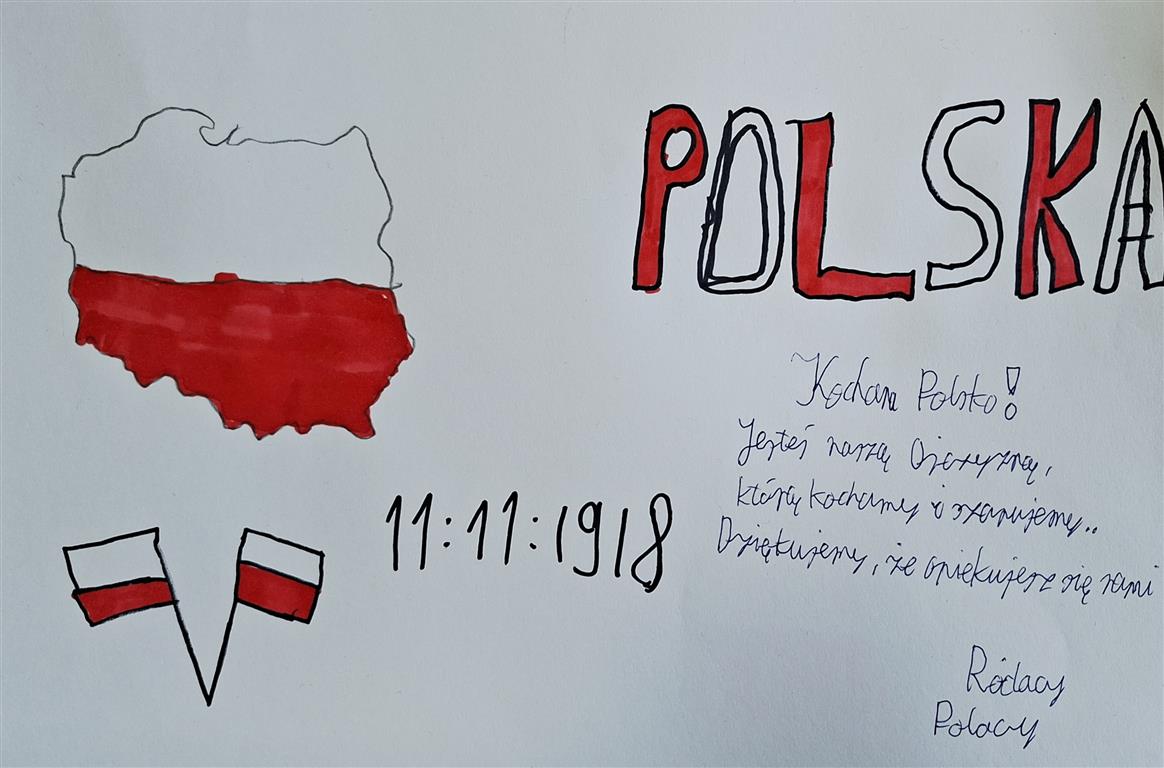 POLSKA
Kochana Polsko!
Jesteś naszą Ojczyzną,
którą kochamy i szanujemy..
Dziękujemy, że opiekujesz się nami
11:11:1918
Rodacy
Polacy